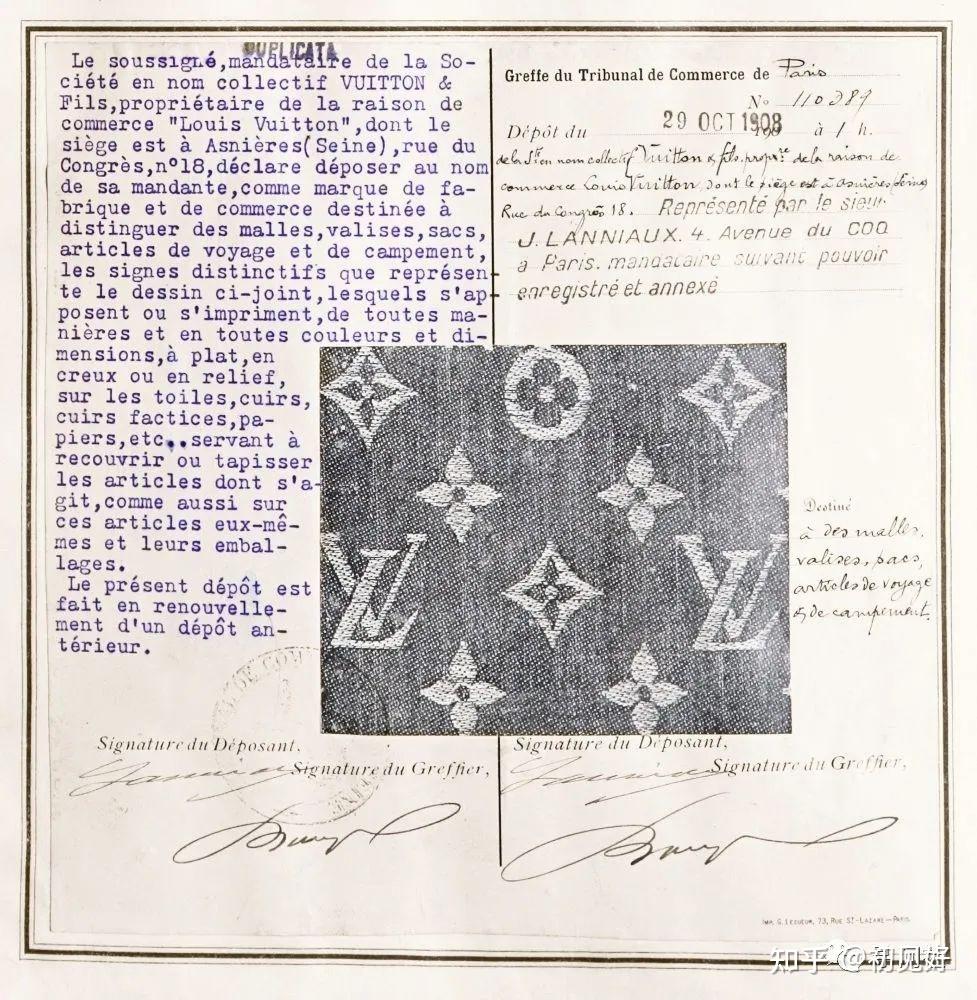 DUPLICATA
Le soussigné,mandataire de la So-
ciété en nom collectif VUITTON &
Fils,propriétaire de la raison de
commerce "Louis Vuitton",dont le
siège est à Asnières(Seine),rue du
Congrès,n°18,déclare déposer au nom
de sa mandante,comme marque de fa-
brique et de commerce destinée à
distinguer des malles,valises,sacs,
articles de voyage et de campement,
les signes distinctifs que représen-
te le dessin ci-joint,lesquels s'ap-
posent ou s'impriment,de toutes ma-
nières et en toutes couleurs et di-
mensions,à plat,en
creux ou en relief,
sur les toiles,cuirs,
cuirs factices,pa-
piers,etc..servant à
recouvrir ou tapisser
les articles dont s'a-
git,comme aussi sur
ces articles eux-mê-
mes et leurs embal-
lages.
Le présent dépôt est
fait en renouvelle-
ment d'un dépôt an-
térieur.
Signature du Déposant,
Signature du Greffier,
Greffe du Tribunal de Commerce de Paris
N° 110289
Dépôt du 29 OCT 1908 à 1 h.
de la Sté en nom collectif Vuitton & fils. propre de la raison de
commerce Louis Vuitton, dont le siège est à Asnières Seine
Rue du Congrès 18. Représenté par le sieur
J. LANNIAUX. 4. Avenue du COQ
à Paris. mandataire suivant pouvoir
enregistré et annexé
LV
LV
Destiné
à des malles,
valises, sacs,
articles de voyage
& de campement.
Signature du Déposant,
Signature du Greffier,
IMP. G. LESUEUR, 73, RUE ST-LAZARE—PARIS
知乎 @初见好